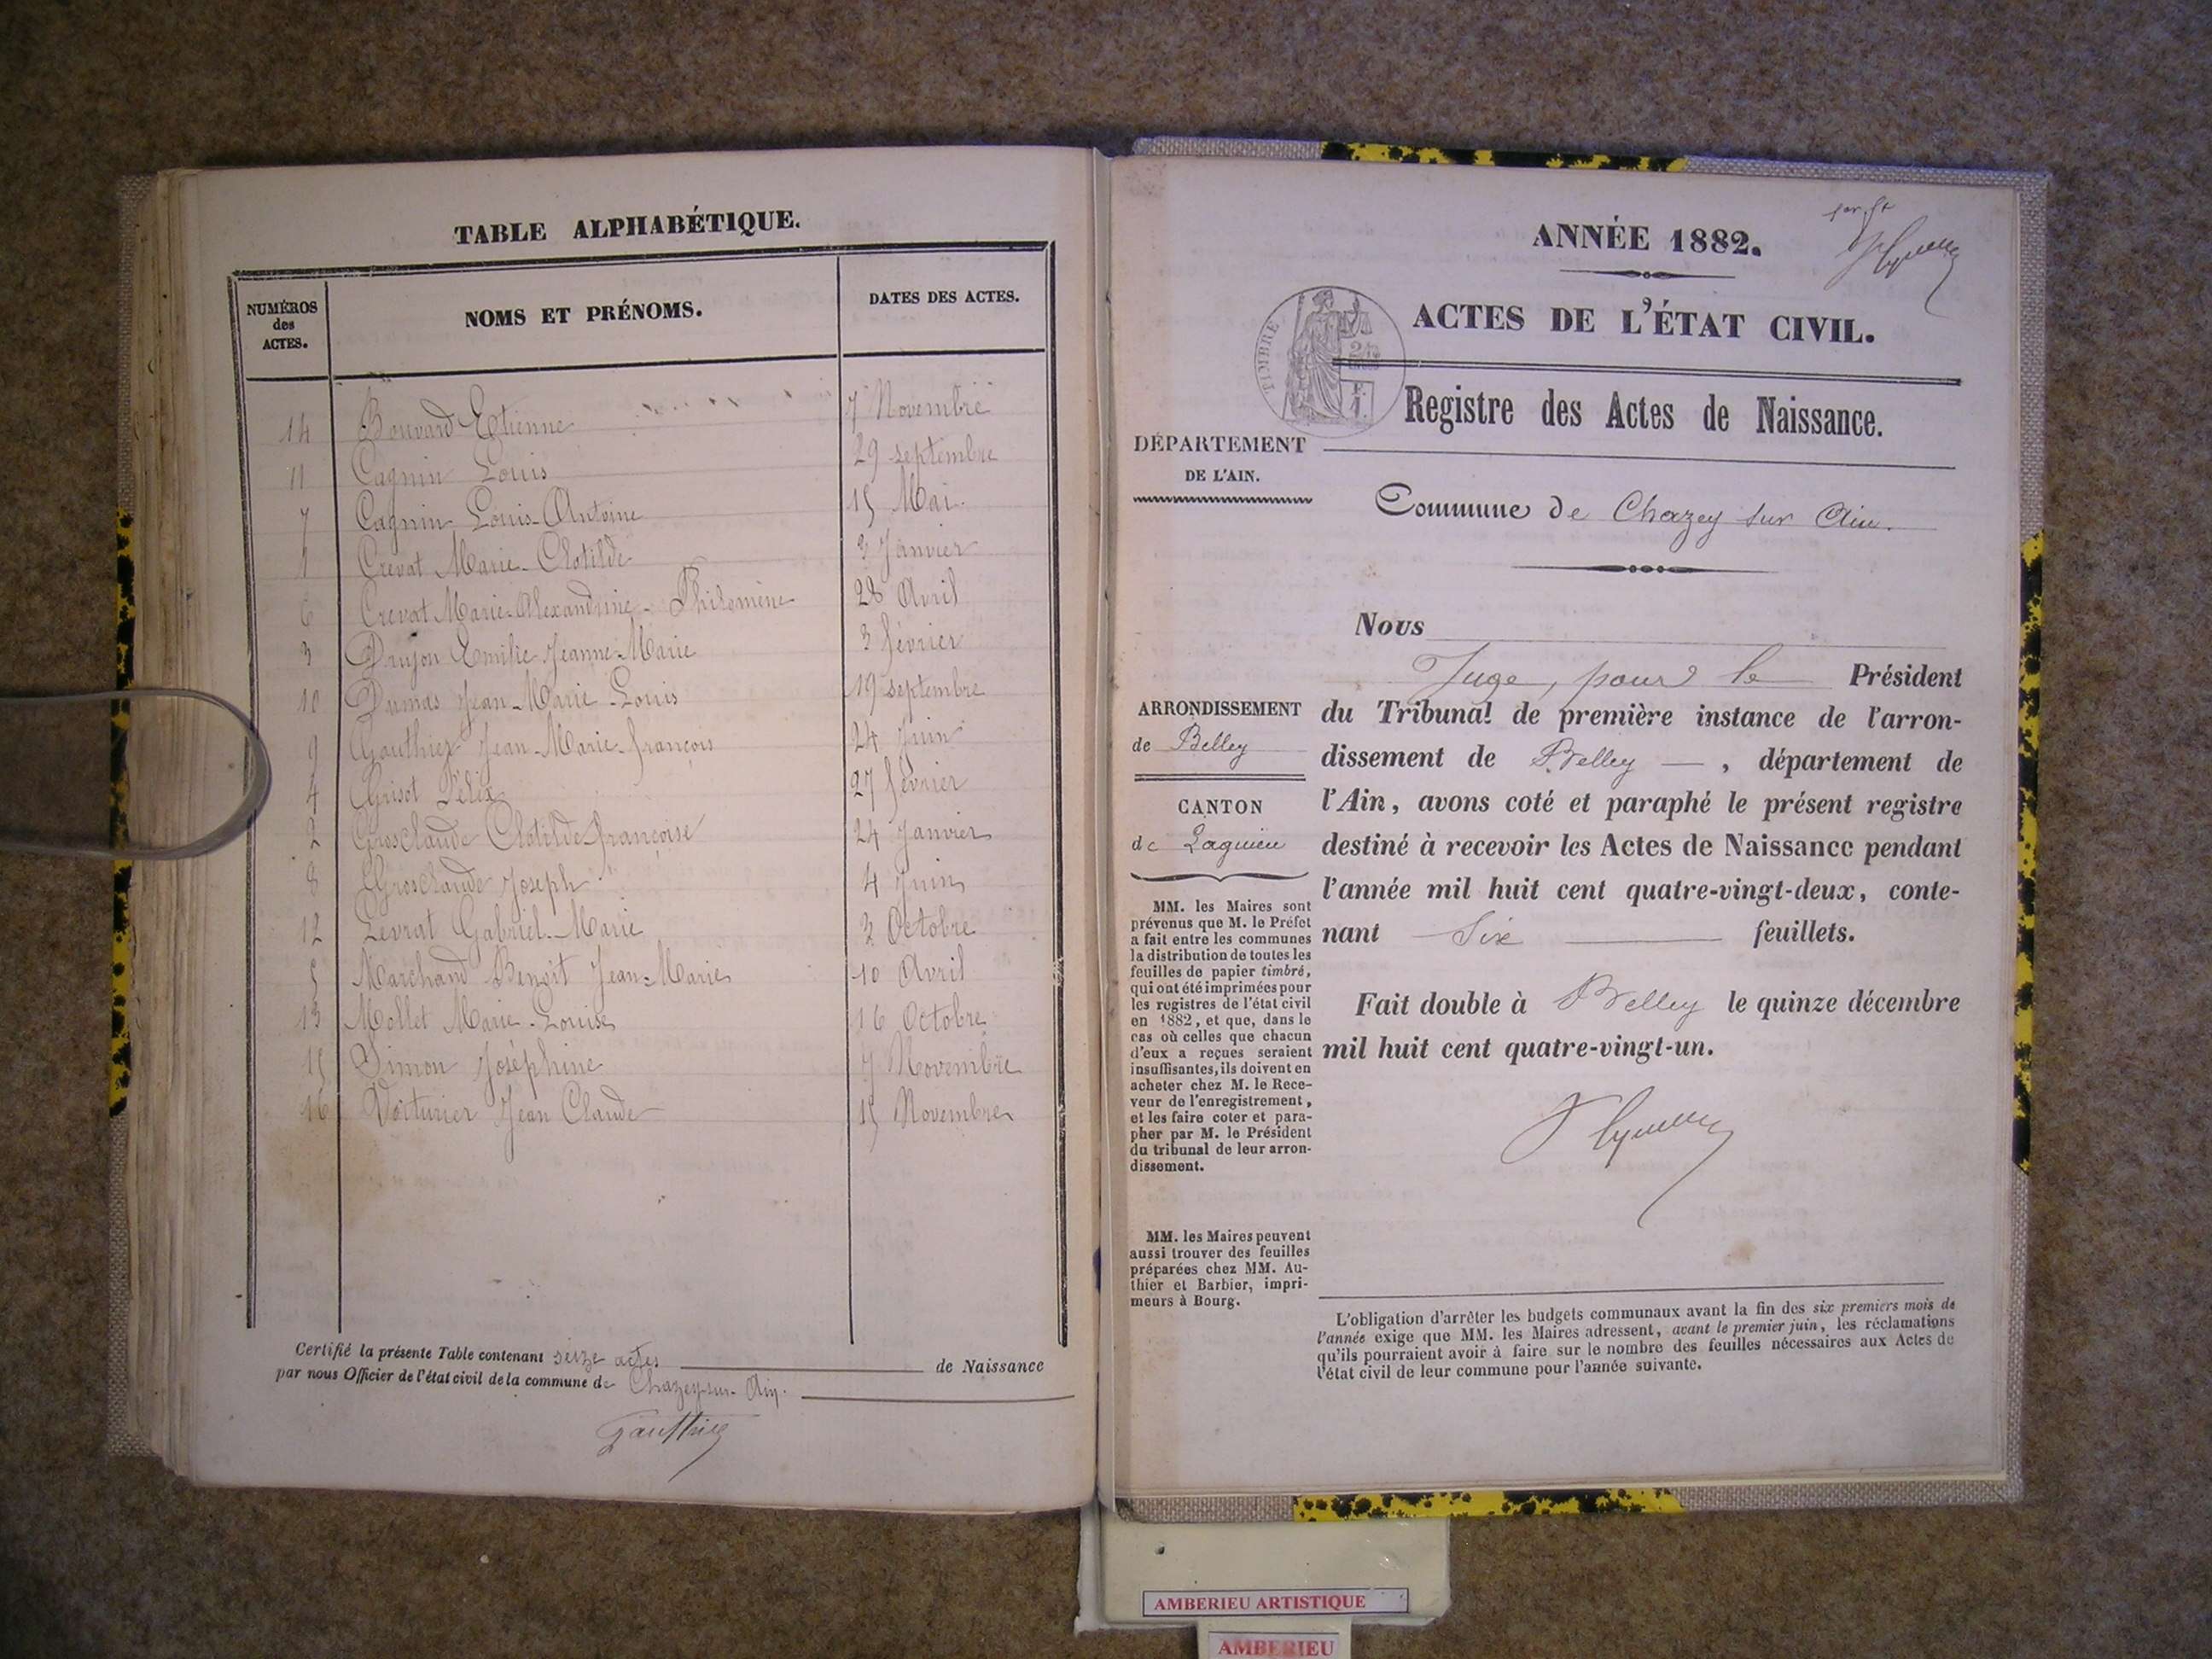 TABLE ALPHABÉTIQUE.
NUMÉROS des ACTES. NOMS ET PRÉNOMS. DATES DES ACTES.
14 Bouvard Etienne 7 Novembre
11 Cagnin Louis 29 septembre
7 Cagnin Louis-Antoine 15 Mai
1 Crevat Marie-Clotilde 3 Janvier
6 Crevat Marie-Alexandrine-Philomène 28 Avril
3 Drujon Emilie Jeanne-Marie 3 février
10 Dumas Jean-Marie-Louis 19 septembre
9 Gauthier Jean-Marie-françois 24 Juin
4 Grisot Félix 27 février
2 Grosclaude Clotilde françoise 24 Janvier
8 Grosclaude Joseph 4 Juin
12 Levrat Gabriel-Marie 2 Octobre
5 Marchand Benoît Jean-Marie 10 Avril
13 Mollet Marie-Louise 16 Octobre
15 Simon Joséphine 7 Novembre
16 Voiturier Jean Claude 15 Novembre
Certifié la présente Table contenant seize actes de Naissance
par nous Officier de l'état civil de la commune de Chazey-sur-Ain.
Gauthier
ANNÉE 1882.
ACTES DE L'ÉTAT CIVIL.
TIMBRE
Registre des Actes de Naissance.
DÉPARTEMENT
DE L'AIN.
Commune de Chazey sur Ain.
Nous
Juge, pour le Président
du Tribunal de première instance de l'arron-
dissement de Belley, département de
l'Ain, avons coté et paraphé le présent registre
destiné à recevoir les Actes de Naissance pendant
l'année mil huit cent quatre-vingt-deux, conte-
nant Six feuillets.
Fait double à Belley le quinze décembre
mil huit cent quatre-vingt-un.
ARRONDISSEMENT
de Belley
CANTON
de Lagnieu
MM. les Maires sont
prévenus que M. le Préfet
a fait entre les communes
la distribution de toutes les
feuilles de papier timbré,
qui ont été imprimées pour
les registres de l'état civil
en 1882, et que, dans le
cas où celles que chacun
d'eux a reçues seraient
insuffisantes, ils doivent en
acheter chez M. le Rece-
veur de l'enregistrement,
et les faire coter et para-
pher par M. le Président
du tribunal de leur arron-
dissement.
MM. les Maires peuvent
aussi trouver des feuilles
préparées chez MM. Au-
thier et Barbier, impri-
meurs à Bourg.
L'obligation d'arrêter les budgets communaux avant la fin des six premiers mois de
l'année exige que MM. les Maires adressent, avant le premier juin, les réclamations
qu'ils pourraient avoir à faire sur le nombre des feuilles nécessaires aux Actes de
l'état civil de leur commune pour l'année suivante.
AMBERIEU ARTISTIQUE
AMBERIEU